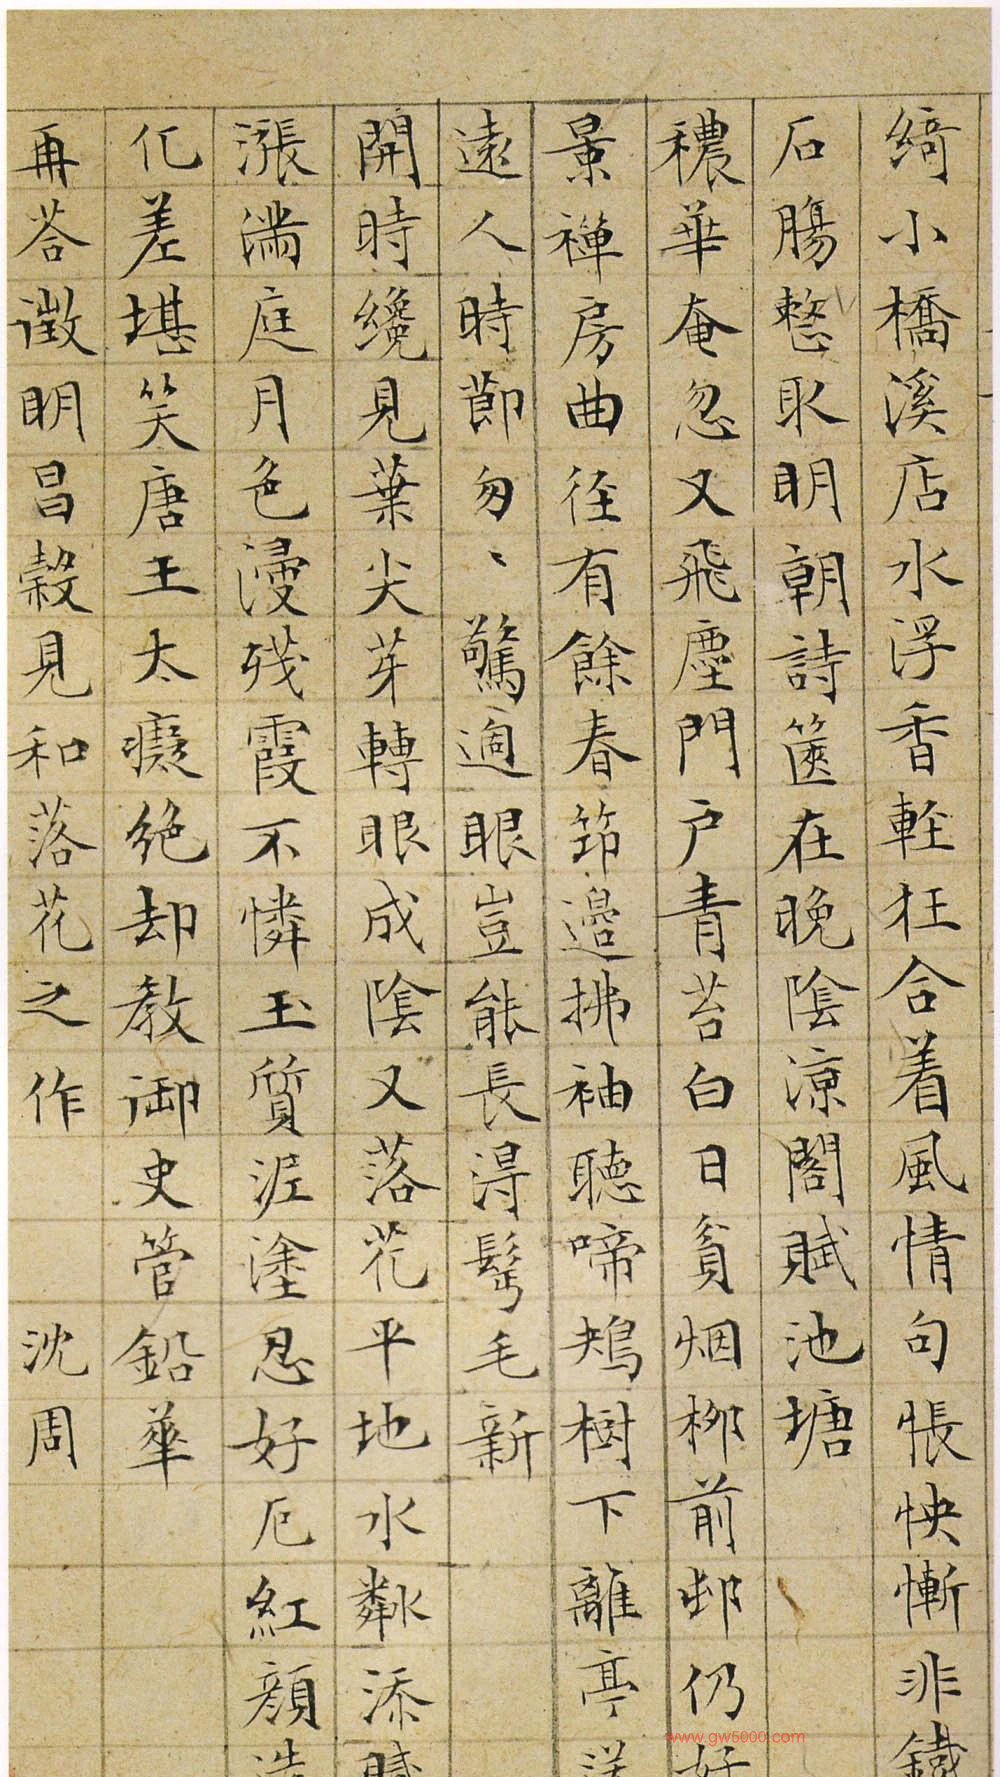 綺小橋溪店水浮香輊狂合着風情句悵怏慚非鐵
石腸愁取明朝詩篋在晚陰涼閣賦池塘
穠華奄忽又飛塵門戶青苔白日貧烟柳前邨仍好
景禪房曲徑有餘春筇邊拂袖聽啼鴂樹下離亭送
遠人時節匆〻驚過眼豈能長得髩毛新
開時纔見葉尖芽轉眼成陰又落花平地水粼添賦
漲滿庭月色漫殘霞不憐玉質泥塗忍好厄紅顏造
化差堪笑唐王太癡絕却教御史管鉛華
再荅徵明昌穀見和落花之作 沈周
www.gw5000.com